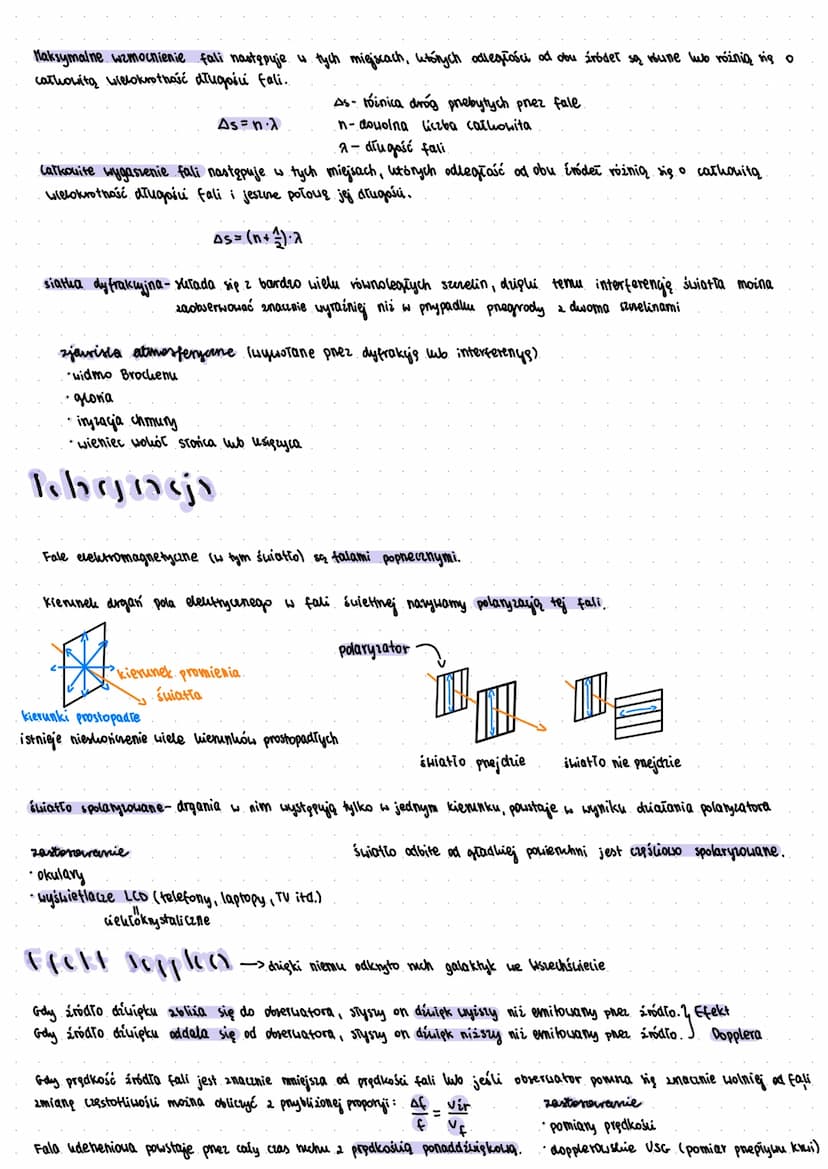 Maksymalne wzmocnienie fali następuje w tych miejscach, których odległości od obu źródeł są równe lub różnią się o
całkowitą wielokrotność długości fali.
Δs - różnica dróg przebytych przez fale
Δs = n·λ
n - dowolna liczba całkowita
λ - długość fali
Całkowite wygaszenie fali następuje w tych miejscach, których odległość od obu źródeł różnią się o całkowitą
wielokrotność długości fali i jeszcze połowę jej długości.
Δs = (n + 1/2)·λ
siatka dyfrakcyjna - składa się z bardzo wielu równoległych szczelin, dzięki temu interferencję światła można
zaobserwować znacznie wyraźniej niż w przypadku przegrody z dwoma szczelinami
zjawiska atmosferyczne (wywołane przez dyfrakcję lub interferencję)
· widmo Brockenu
· gloria
· iryzacja chmury
· wieniec wokół słońca lub księżyca
Polaryzacja
Fale elektromagnetyczne (w tym światło) są falami poprzecznymi.
Kierunek drgań pola elektrycznego w fali świetlnej nazywamy polaryzacją tej fali.
polaryzator
kierunek promienia
światła
kierunki prostopadłe
istnieje nieskończenie wiele kierunków prostopadłych
światło przejdzie
światło nie przejdzie
światło spolaryzowane - drgania w nim występują tylko w jednym kierunku, powstaje w wyniku działania polaryzatora
zastosowanie
światło odbite od gładkiej powierzchni jest częściowo spolaryzowane.
· okulary
· wyświetlacze LCD (telefony, laptopy, TV itd.)
ciekłokrystaliczne
Efekt Dopplera → dzięki niemu odkryto ruch galaktyk we Wszechświecie
Gdy źródło dźwięku zbliża się do obserwatora, słyszy on dźwięk wyższy niż emitowany przez źródło. } Efekt
Gdy źródło dźwięku oddala się od obserwatora, słyszy on dźwięk niższy niż emitowany przez źródło. Dopplera
Gdy prędkość źródła fali jest znacznie mniejsza od prędkości fali lub jeśli obserwator porusza się znacznie wolniej od fali
zmianę częstotliwości można obliczyć z przybliżonej proporcji: Δf/f = Vźr/Vf
zastosowanie
· pomiary prędkości
Fala uderzeniowa powstaje przez cały czas ruchu z prędkością ponaddźwiękową.
· dopplerowskie USG (pomiar przepływu krwi)